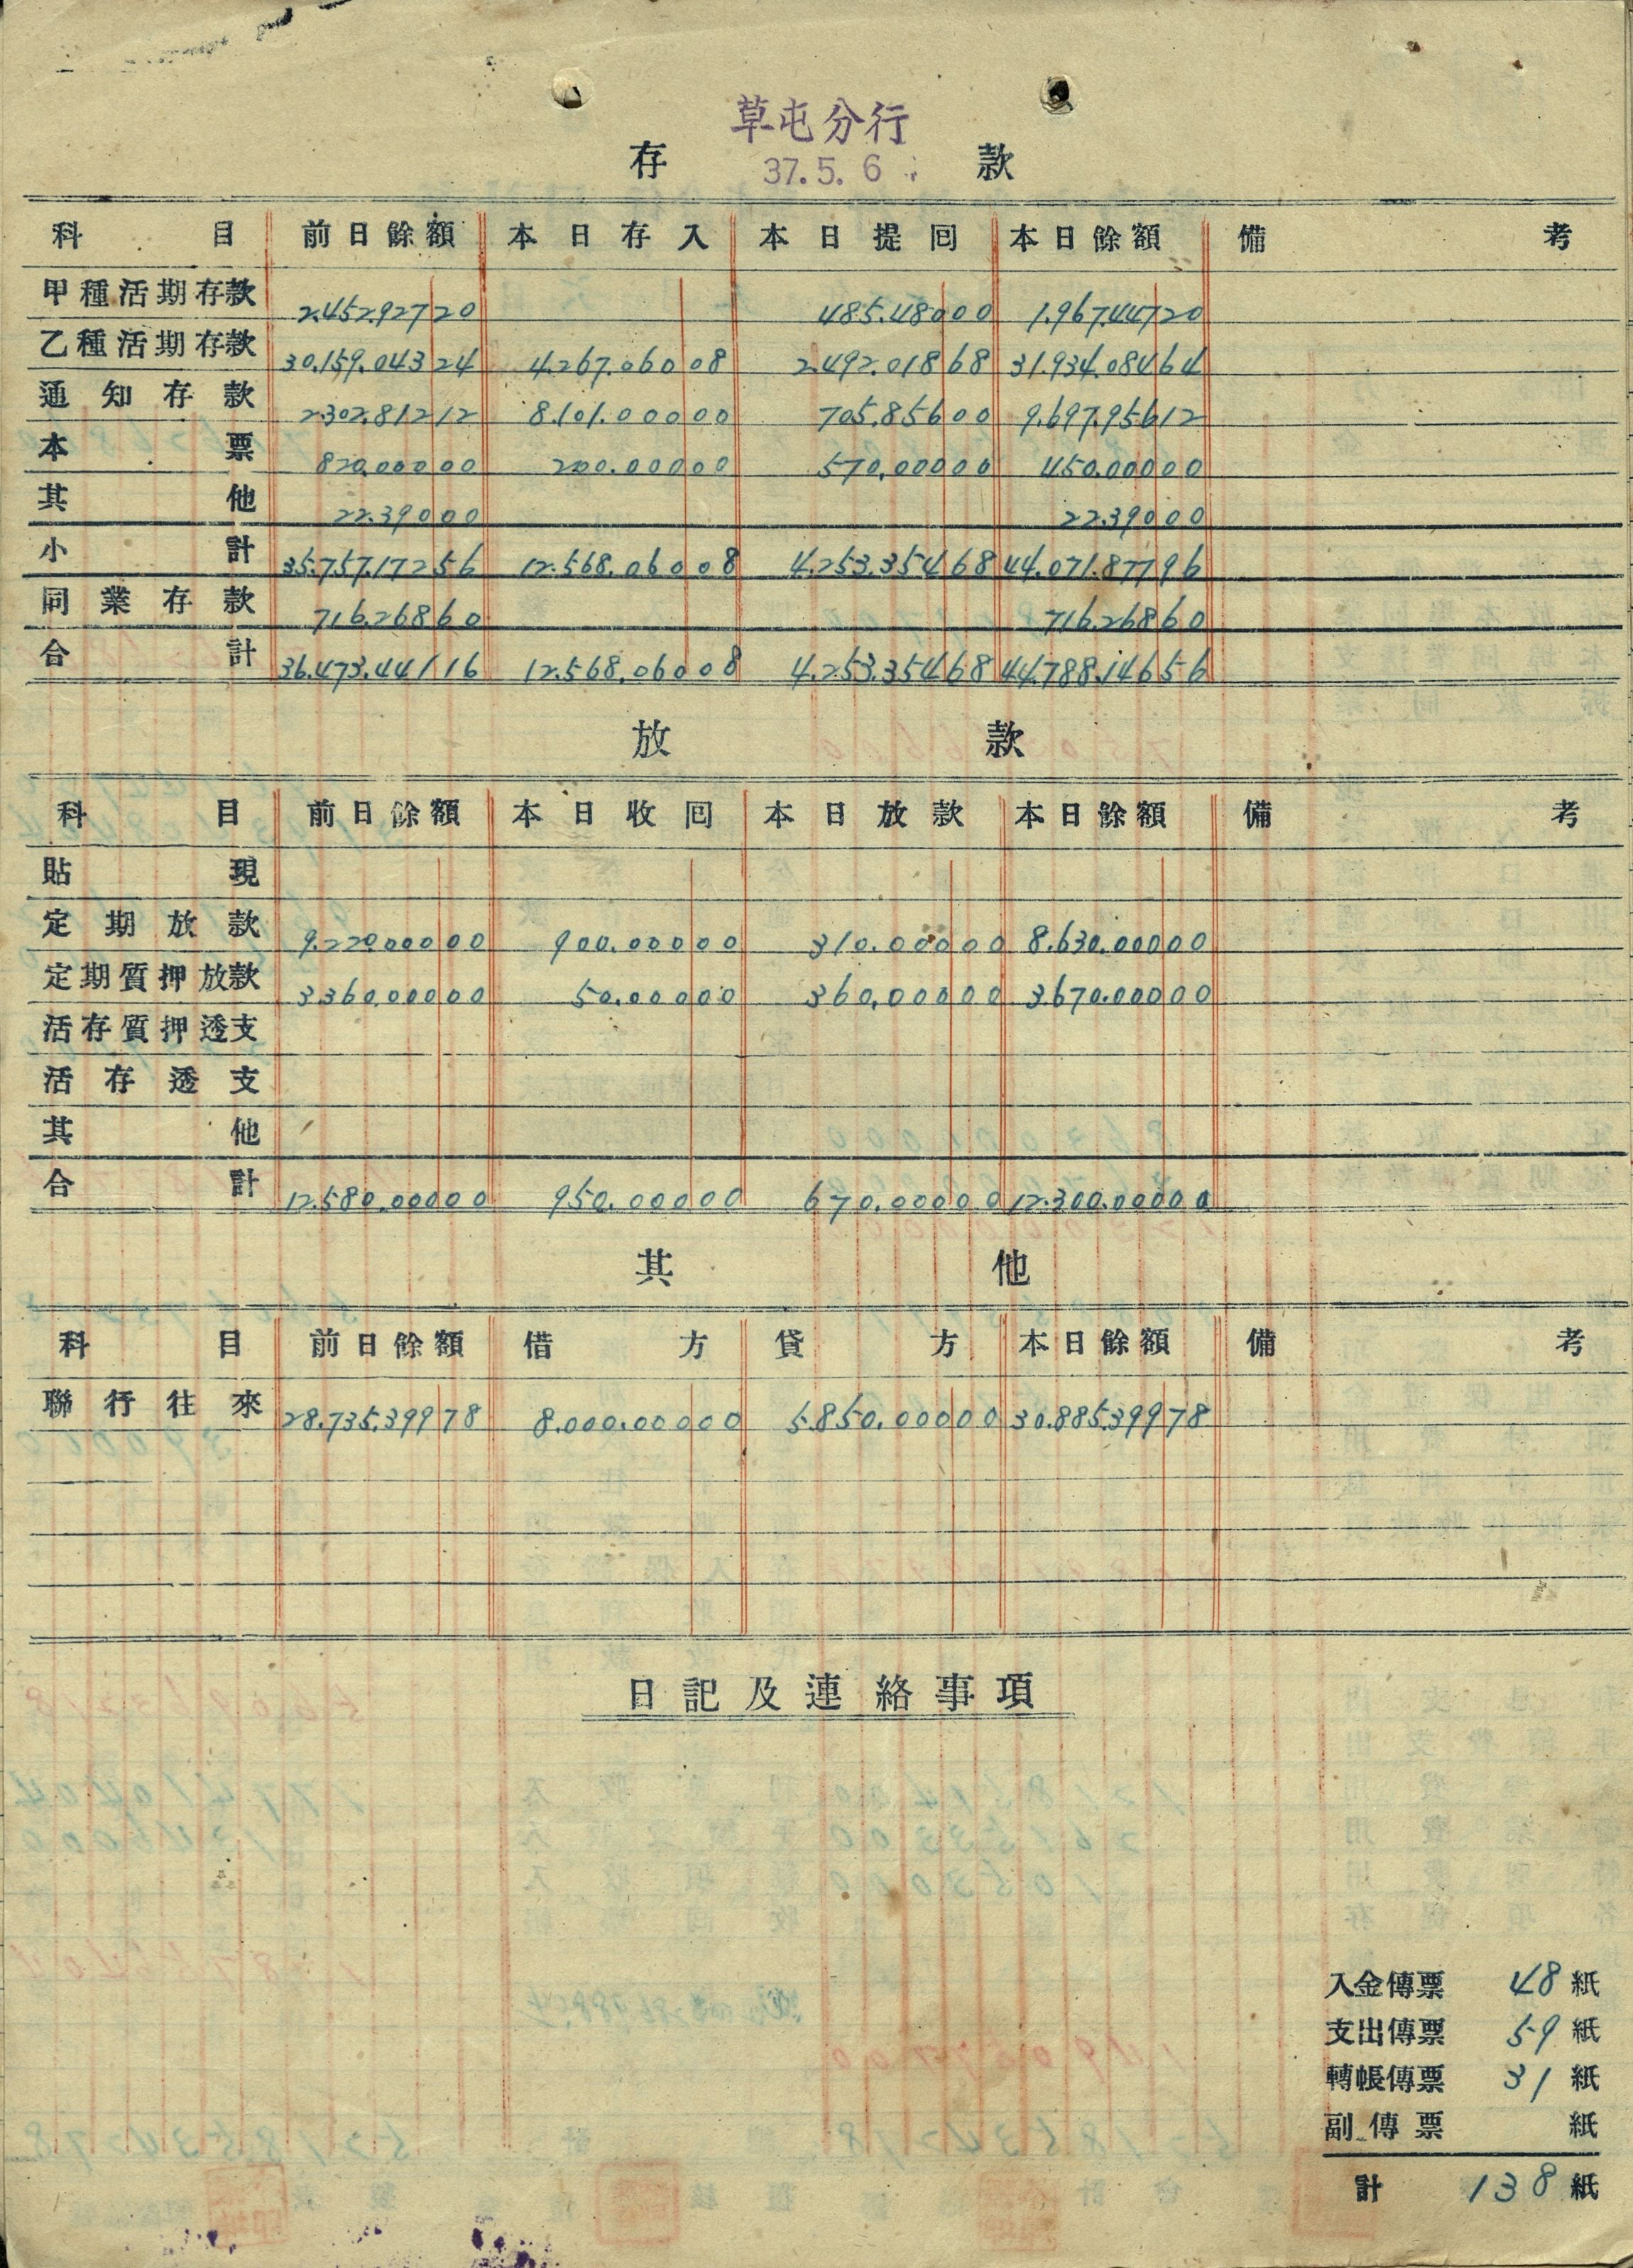 草屯分行
存 37.5.6 款
科目 前日餘額 本日存入 本日提回 本日餘額 備考
甲種活期存款 2.452.927 20 485.480 00 1.967.447 20
乙種活期存款 30.159.043 24 4.267.060 08 2.492.018 68 31.934.084 64
通知存款 2.302.812 12 8.101.000 00 705.856 00 9.697.956 12
本票 820.000 00 200.000 00 570.000 00 450.000 00
其他 22.390 00 22.390 00
小計 35.757.172 56 12.568.060 08 4.253.354 68 44.071.877 96
同業存款 716.268 60 716.268 60
合計 36.473.441 16 12.568.060 08 4.253.354 68 44.788.146 56
放款
科目 前日餘額 本日收回 本日放款 本日餘額 備考
貼現
定期放款 9.220.000 00 900.000 00 310.000 00 8.630.000 00
定期質押放款 3.360.000 00 50.000 00 360.000 00 3.670.000 00
活存質押透支
活存透支
其他
合計 12.580.000 00 950.000 00 670.000 00 12.300.000 00
其他
科目 前日餘額 借方 貸方 本日餘額 備考
聯行往來 28.735.399 78 8.000.000 00 5.850.000 00 30.885.399 78
日記及連絡事項
入金傳票 48 紙
支出傳票 59 紙
轉帳傳票 31 紙
副傳票 紙
計 138 紙